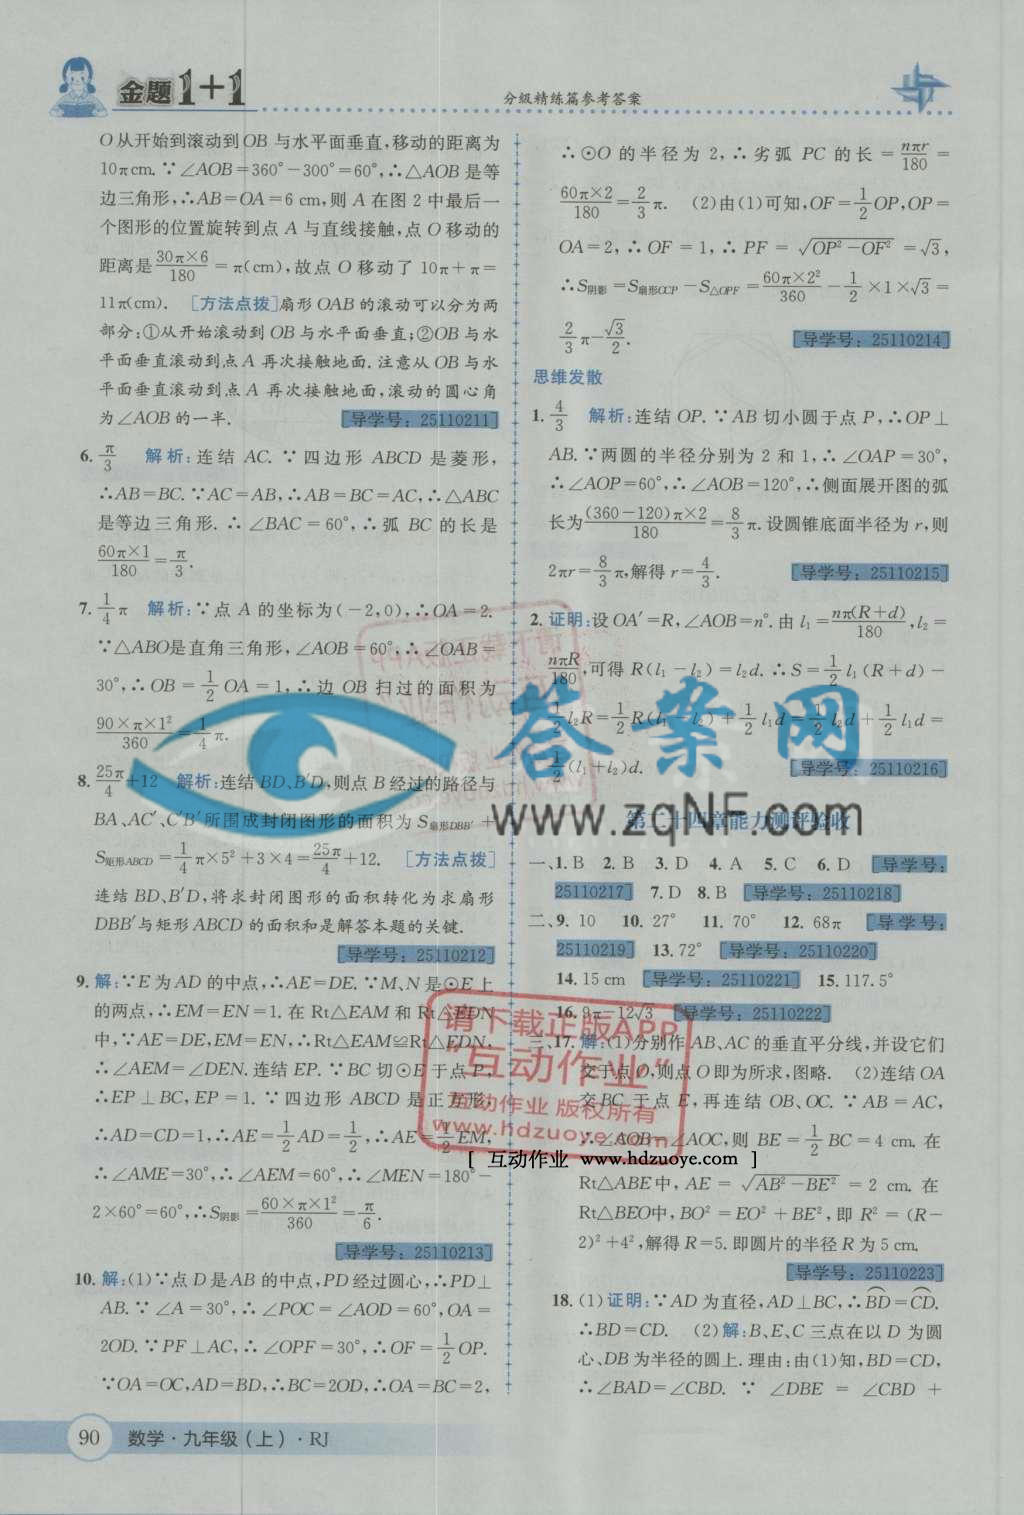 金题1+1
分级精练篇参考答案
O从开始到滚动到OB与水平面垂直,移动的距离为
10πcm.∵∠AOB=360°-300°=60°,∴△AOB是等
边三角形,∴AB=OA=6 cm,则A在图2中最后一
个图形的位置旋转到点A与直线接触,点O移动的
距离是30π×6/180=π(cm),故点O移动了10π+π=
11π(cm). [方法点拨]扇形OAB的滚动可以分为两
部分:①从开始滚动到OB与水平面垂直;②OB与水
平面垂直滚动到点A再次接触地面.注意从OB与水
平面垂直滚动到点A再次接触地面,滚动的圆心角
为∠AOB的一半. [导学号:25110211]
6. π/3 解析:连结AC.∵四边形ABCD是菱形,
∴AB=BC.∵AC=AB,∴AB=BC=AC,∴△ABC
是等边三角形.∴∠BAC=60°,∴弧BC的长是
60π×1/180=π/3.
7. 1/4π 解析:∵点A的坐标为(-2,0),∴OA=2.
∵△ABO是直角三角形,∠AOB=60°,∴∠OAB=
30°,∴OB=1/2OA=1,∴边OB扫过的面积为
90×π×1²/360=1/4π.
8. 25π/4+12 解析:连结BD、B′D,则点B经过的路径与
BA、AC′、C′B′所围成封闭图形的面积为S扇形DBB′+
S矩形ABCD=1/4π×5²+3×4=25π/4+12. [方法点拨]
连结BD、B′D,将求封闭图形的面积转化为求扇形
DBB′与矩形ABCD的面积和是解答本题的关键.
[导学号:25110212]
9. 解:∵E为AD的中点,∴AE=DE.∵M、N是⊙E上
的两点,∴EM=EN=1.在Rt△EAM和Rt△EDN
中,∵AE=DE,EM=EN,∴Rt△EAM≌Rt△EDN,
∴∠AEM=∠DEN.连结EP.∵BC切⊙E于点P,
∴EP⊥BC,EP=1.∵四边形ABCD是正方形,
∴AD=CD=1,∴AE=1/2AD=1/2,∴AE=1/2EM,
∴∠AME=30°,∴∠AEM=60°,∴∠MEN=180°-
2×60°=60°,∴S阴影=60×π×1²/360=π/6.
[导学号:25110213]
10. 解:(1)∵点D是AB的中点,PD经过圆心,∴PD⊥
AB.∵∠A=30°,∴∠POC=∠AOD=60°,OA=
2OD.∵PF⊥AC,∴∠OPF=30°,∴OF=1/2OP.
∵OA=OC,AD=BD,∴BC=2OD,∴OA=BC=2,
∴⊙O的半径为2,∴劣弧PC的长=nπr/180=
60π×2/180=2/3π. (2)由(1)可知,OF=1/2OP,OP=
OA=2,∴OF=1,∴PF=√OP²-OF²=√3,
∴S阴影=S扇形OCP-S△OPF=60π×2²/360-1/2×1×√3=
2/3π-√3/2. [导学号:25110214]
思维发散
1. 4/3 解析:连结OP.∵AB切小圆于点P,∴OP⊥
AB.∵两圆的半径分别为2和1,∴∠OAP=30°,
∴∠AOP=60°,∴∠AOB=120°,∴侧面展开图的弧
长为(360-120)π×2/180=8/3π.设圆锥底面半径为r,则
2πr=8/3π,解得r=4/3. [导学号:25110215]
2. 证明:设OA′=R,∠AOB=n°.由l₁=nπ(R+d)/180,l₂=
nπR/180,可得R(l₁-l₂)=l₂d.∴S=1/2l₁(R+d)-
1/2l₂R=1/2R(l₁-l₂)+1/2l₁d=1/2l₂d+1/2l₁d=
1/2(l₁+l₂)d. [导学号:25110216]
第二十四章能力测评验收
一、1.B 2.B 3.D 4.A 5.C 6.D [导学号:
25110217] 7.D 8.B [导学号:25110218]
二、9. 10 10. 27° 11. 70° 12. 68π [导学号:
25110219] 13. 72° [导学号:25110220]
14. 15 cm [导学号:25110221] 15. 117.5°
16. 9π-12√3 [导学号:25110222]
三、17. 解:(1)分别作AB、AC的垂直平分线,并设它们
交于点O,则点O即为所求,图略. (2)连结OA
交BC于点E,再连结OB、OC.∵AB=AC,
∴∠AOB=∠AOC,则BE=1/2BC=4 cm.在
Rt△ABE中,AE=√AB²-BE²=2 cm.在
Rt△BEO中,BO²=EO²+BE²,即R²=(R-
2)²+4²,解得R=5.即圆片的半径R为5 cm.
[导学号:25110223]
18. (1)证明:∵AD为直径,AD⊥BC,∴BD=CD.
∴BD=CD. (2)解:B、E、C三点在以D为圆
心、DB为半径的圆上.理由:由(1)知,BD=CD,
∴∠BAD=∠CBD.∵∠DBE=∠CBD+
答案网
www.zqNF.com
请下载正版APP
"互动作业"
互动作业 版权所有
www.hdzuoye.com
[ 互动作业 www.hdzuoye.com ]
90 数学·九年级(上)·RJ